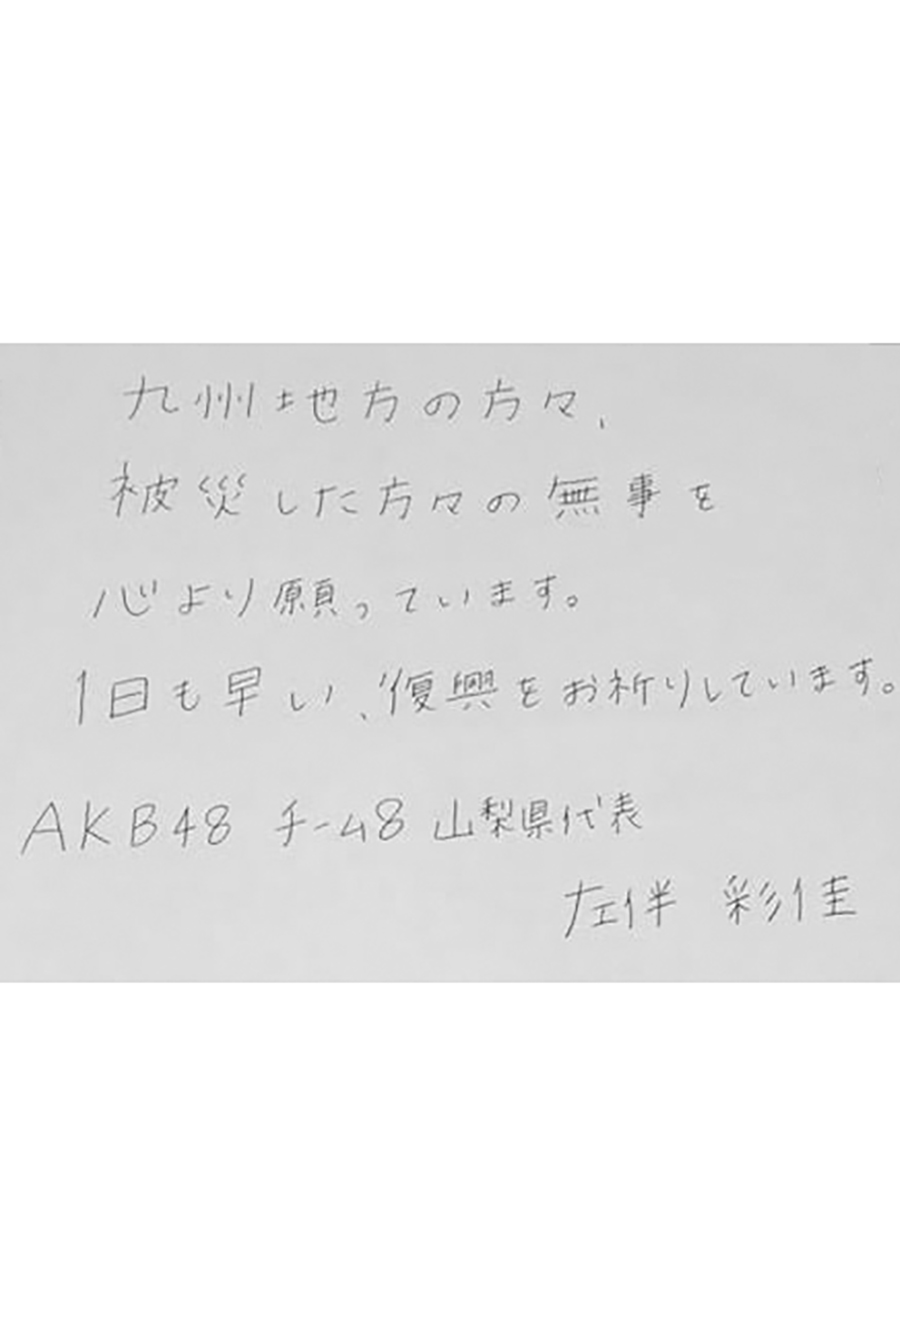 九州地方の方々、
被災した方々の無事を
心より願っています。
1日も早い、復興をお祈りしています。
AKB48 チーム8 山梨県代表
左伴 彩佳